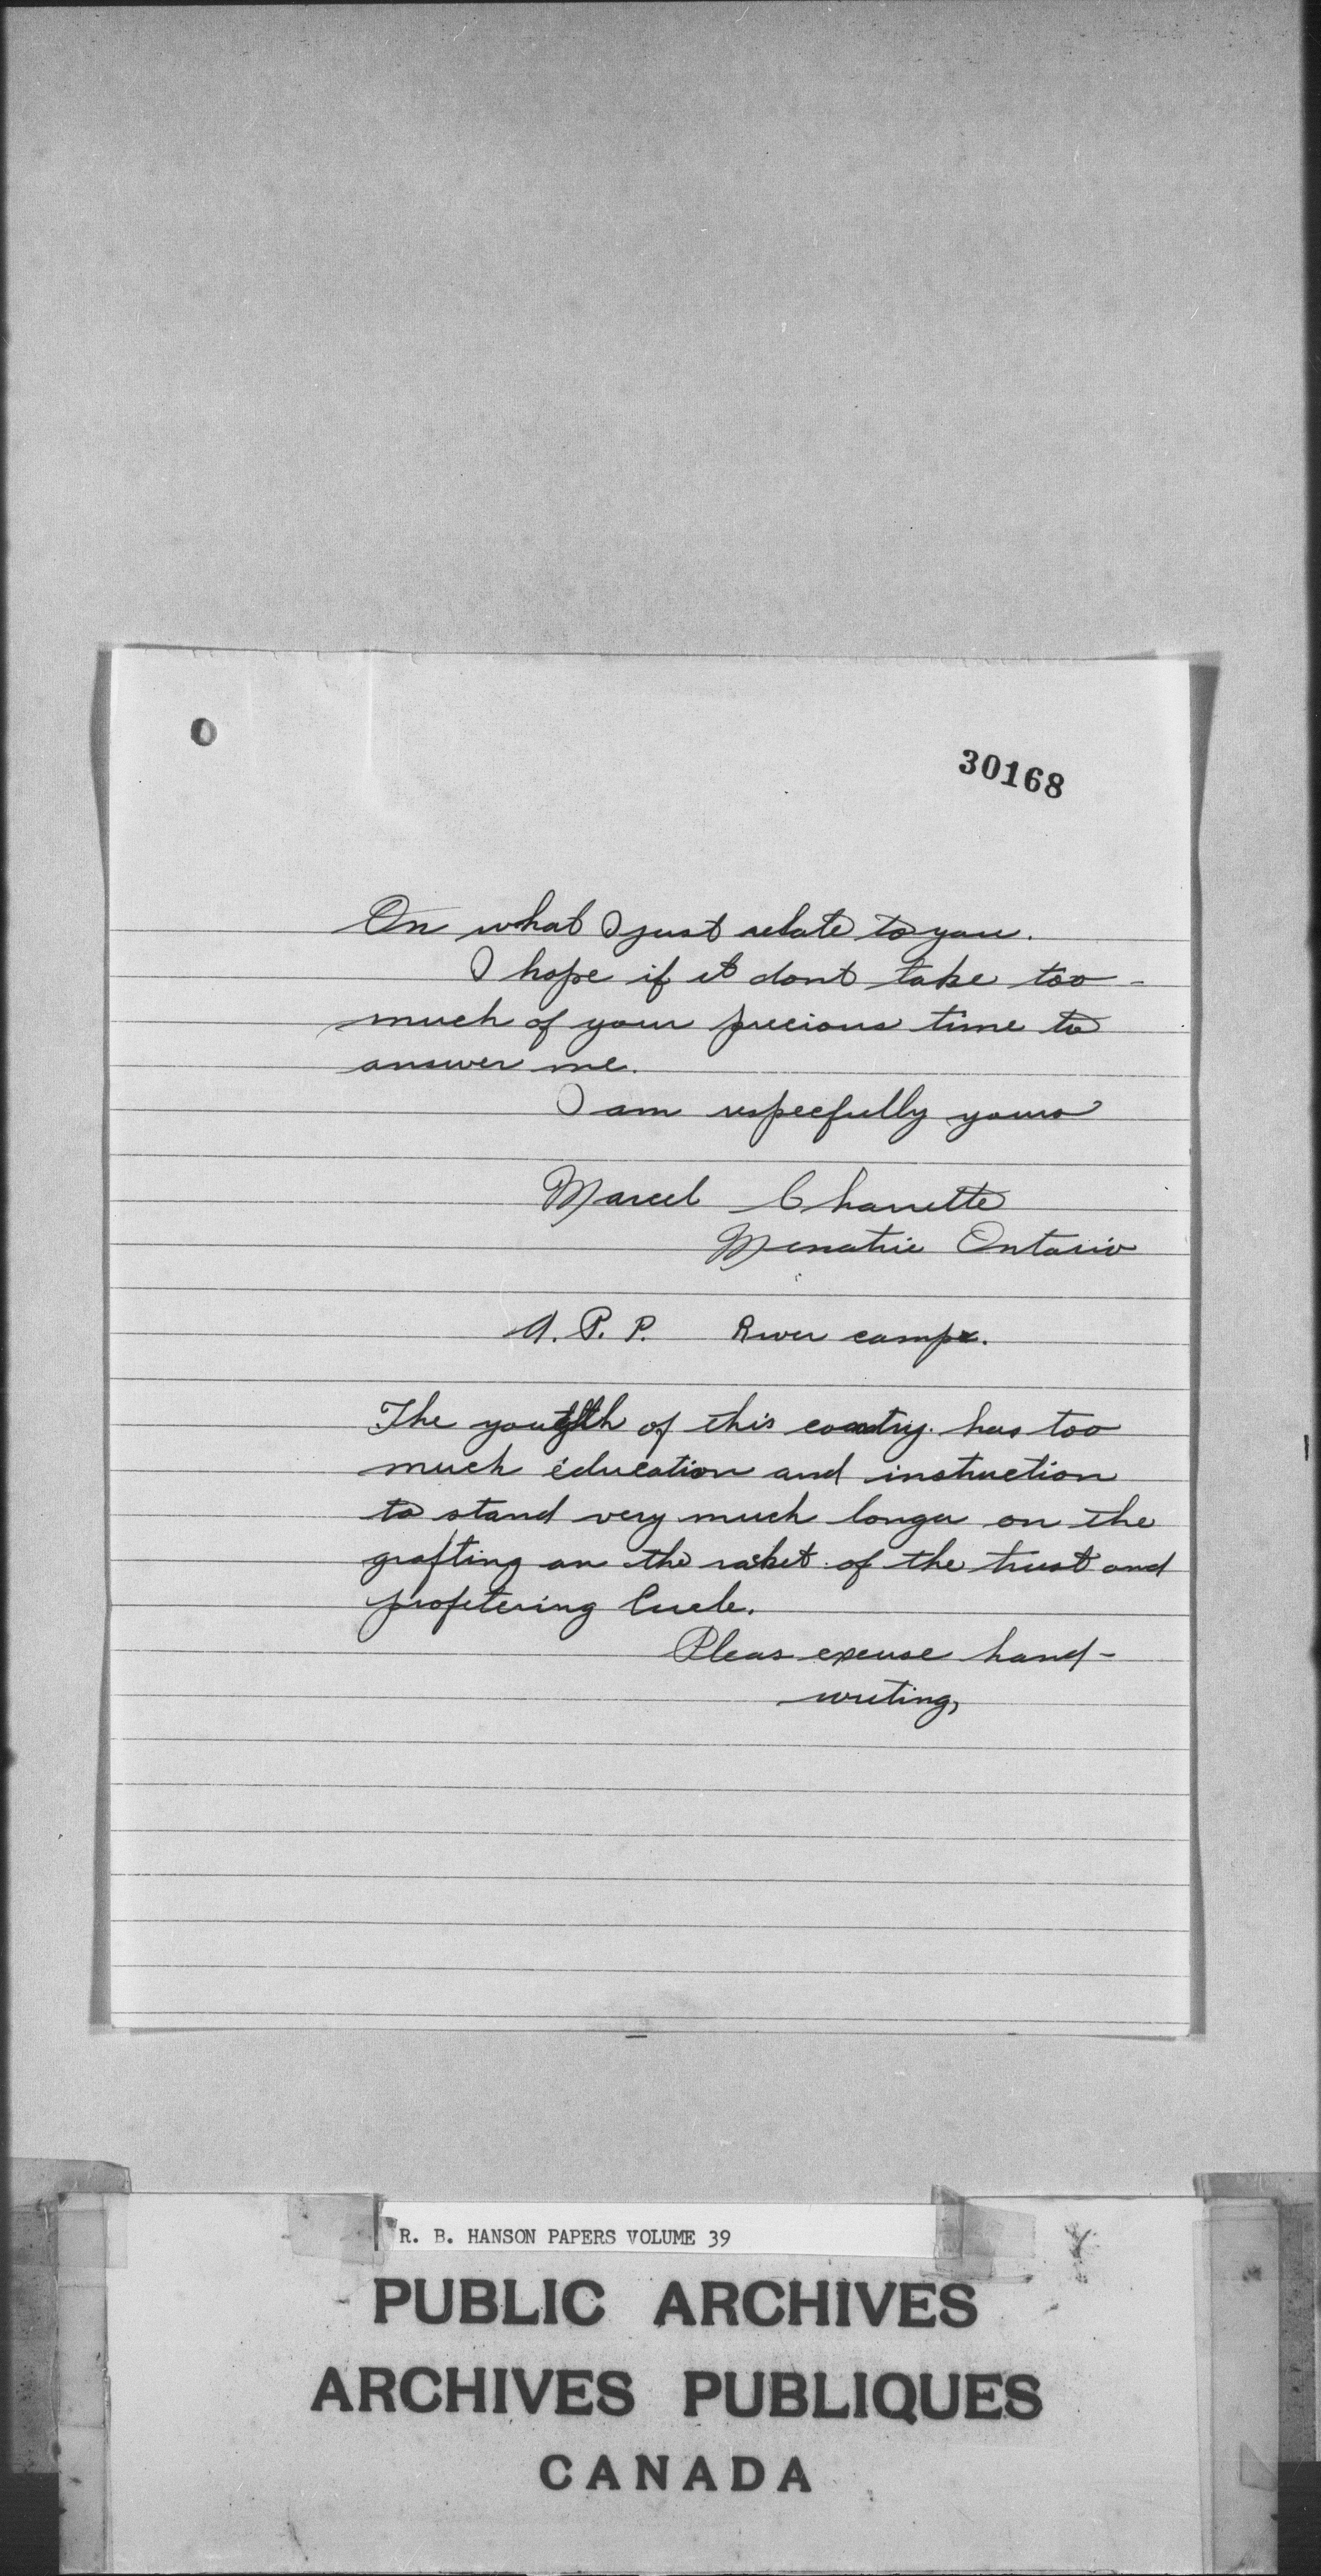 30168
On what I just relate to you.
I hope if it dont take too -
much of your precious time to
answer me.
I am respecfully yours
Marcel Charrette
Ontario
A. P. P. River camp.
The youth of this country has too
much éducation and instruction
to stand very much longer on the
grafting an the raket of the trust and
profetering Circle.
Pleas excuse hand-
writing,
R. B. HANSON PAPERS VOLUME 39
PUBLIC ARCHIVES
ARCHIVES PUBLIQUES
CANADA